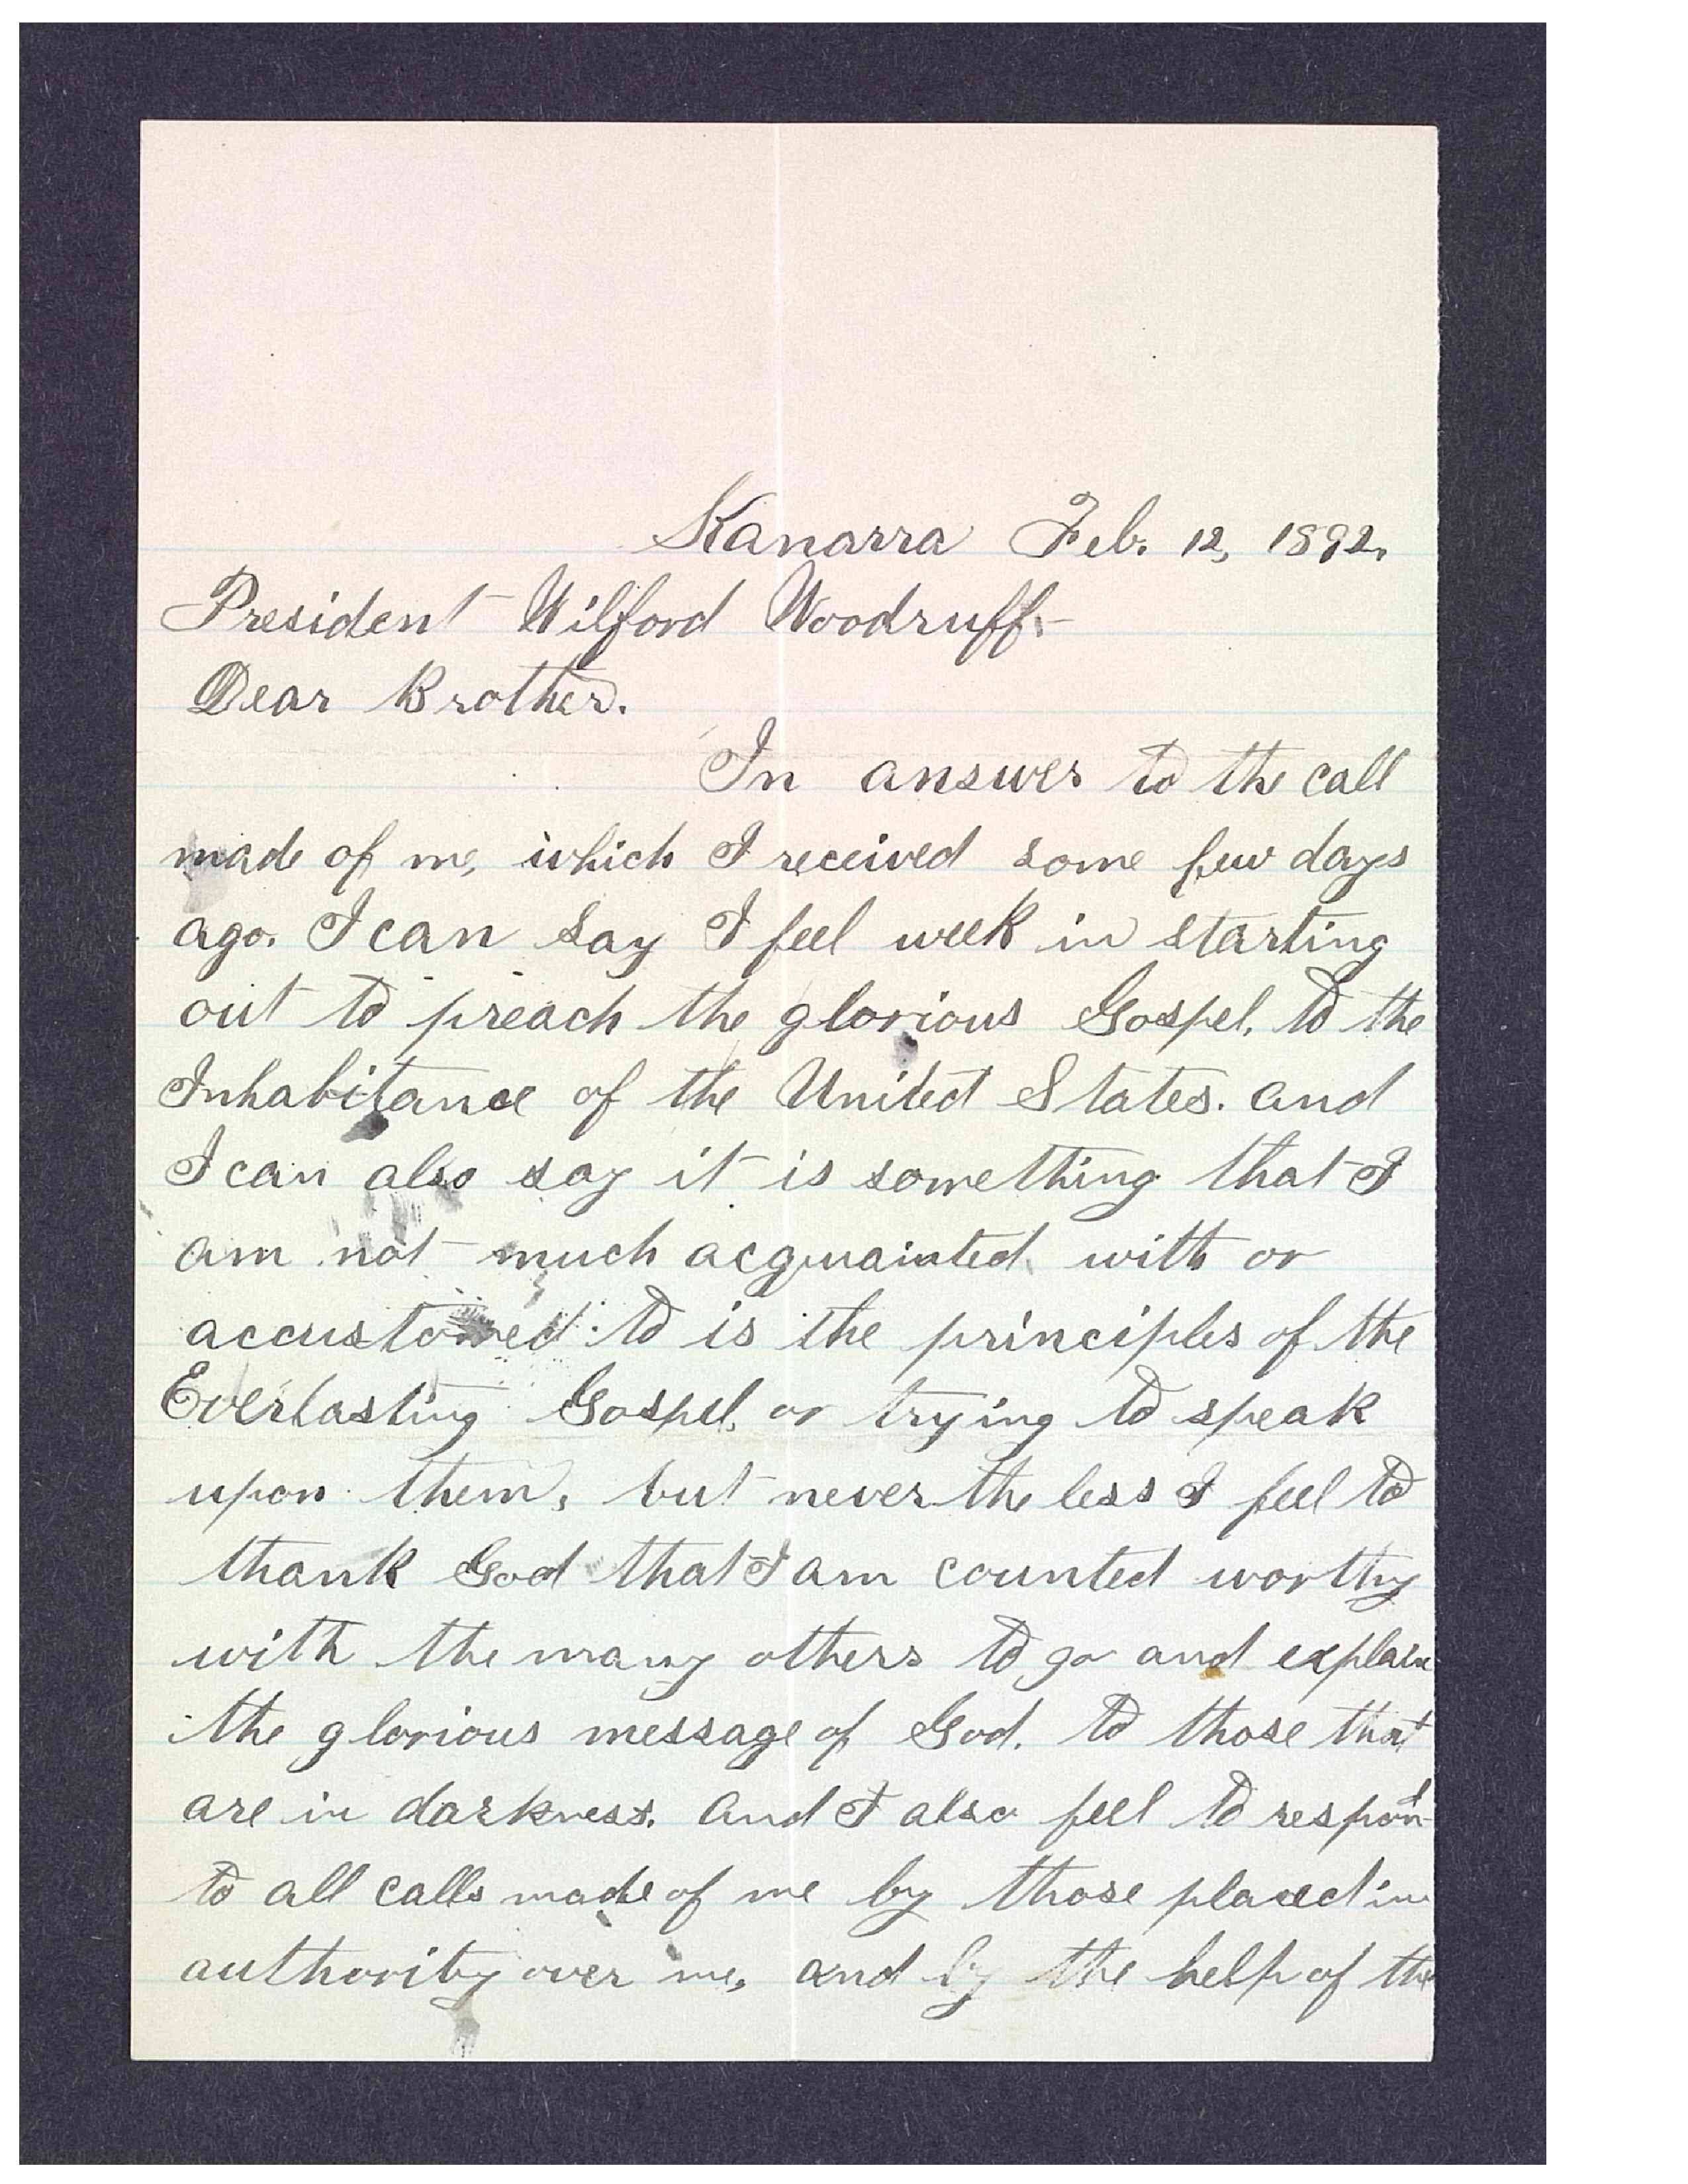 Kanarra Feb. 12, 1892.
President Wilford Woodruff.-
Dear Brother.
In answer to the call
made of me, which I received some few days
ago. I can say I feel week in starting
out to preach the glorious Gospel. to the
Inhabitance of the United States. and
I can also say it is something that I
am not much acquainted with or
accustomed to is the principles of the
Everlasting Gospel, or trying to speak
upon them, but never the less I feel to
thank God that I am counted worthy
with the many others to go and explain
the glorious message of God. to those that
are in darkness. and I also feel to respond
to all calls made of me by those placed in
authority over me, and by the help of the